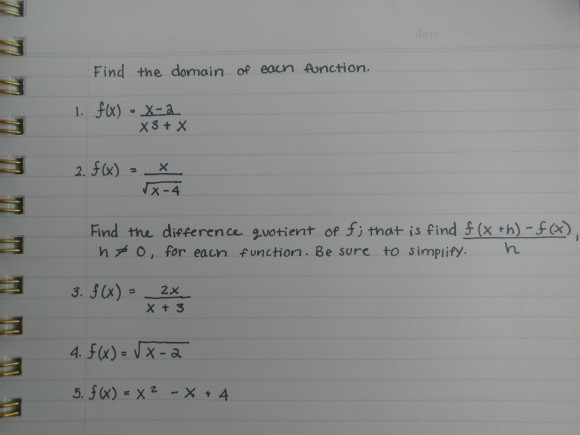 date / /
Find the domain of each function.
1. f(x) = x-2 / x3 + x
2. f(x) = x / √x-4
Find the difference quotient of f; that is find f(x+h) - f(x) / h,
h ≠ 0, for each function. Be sure to simplify.
3. f(x) = 2x / x + 3
4. f(x) = √x-2
5. f(x) = x² - x + 4